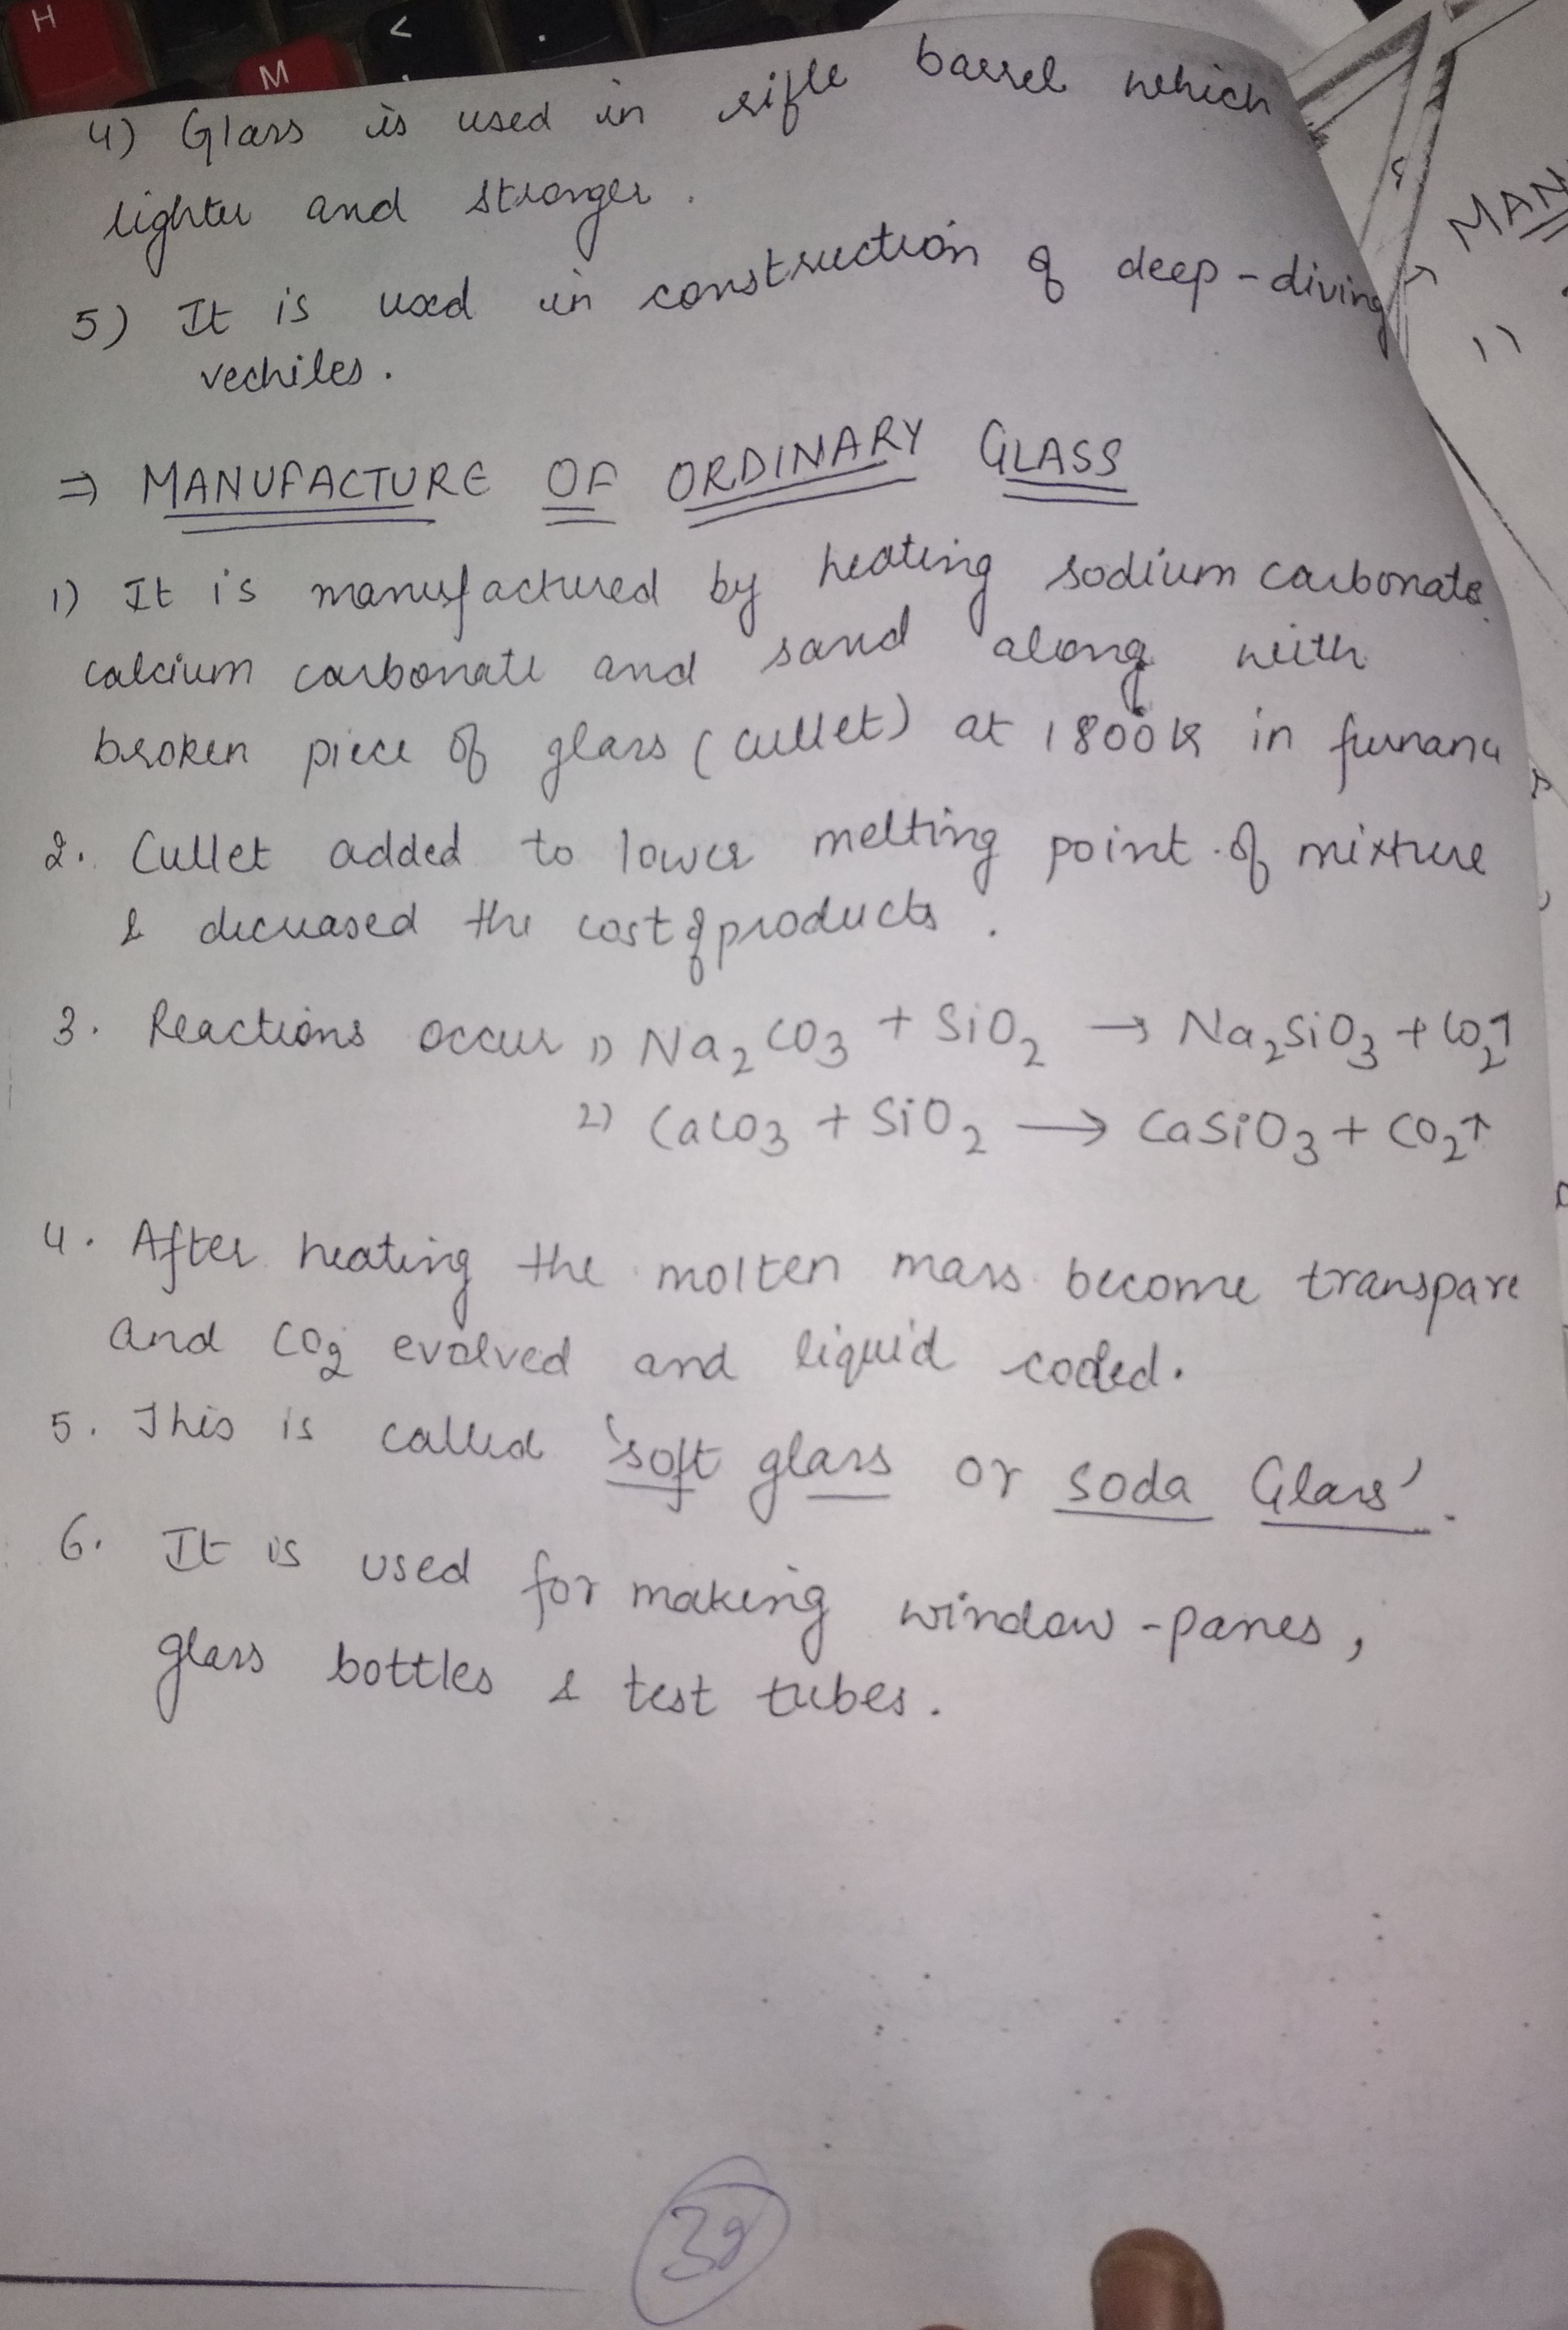 H
<
.
M
4) Glass is used in rifle barrel which
lighter and stronger.
5) It is used in construction of deep-diving
vechiles.
⇒ MANUFACTURE OF ORDINARY GLASS
1) It is manufactured by heating sodium carbonate
calcium carbonate and sand along with
broken piece of glass (cullet) at 1800K in furnanc
2. Cullet added to lower melting point of mixture
& decreased the cost of products.
3. Reactions occur 1) Na₂CO₃ + SiO₂ → Na₂SiO₃ + CO₂↑
2) CaCO₃ + SiO₂ → CaSiO₃ + CO₂↑
4. After heating the molten mass become transpare
and CO₂ evolved and liquid cooled.
5. This is called 'soft glass or soda Glass'.
6. It is used for making window-panes,
glass bottles & test tubes.
MAN
1)